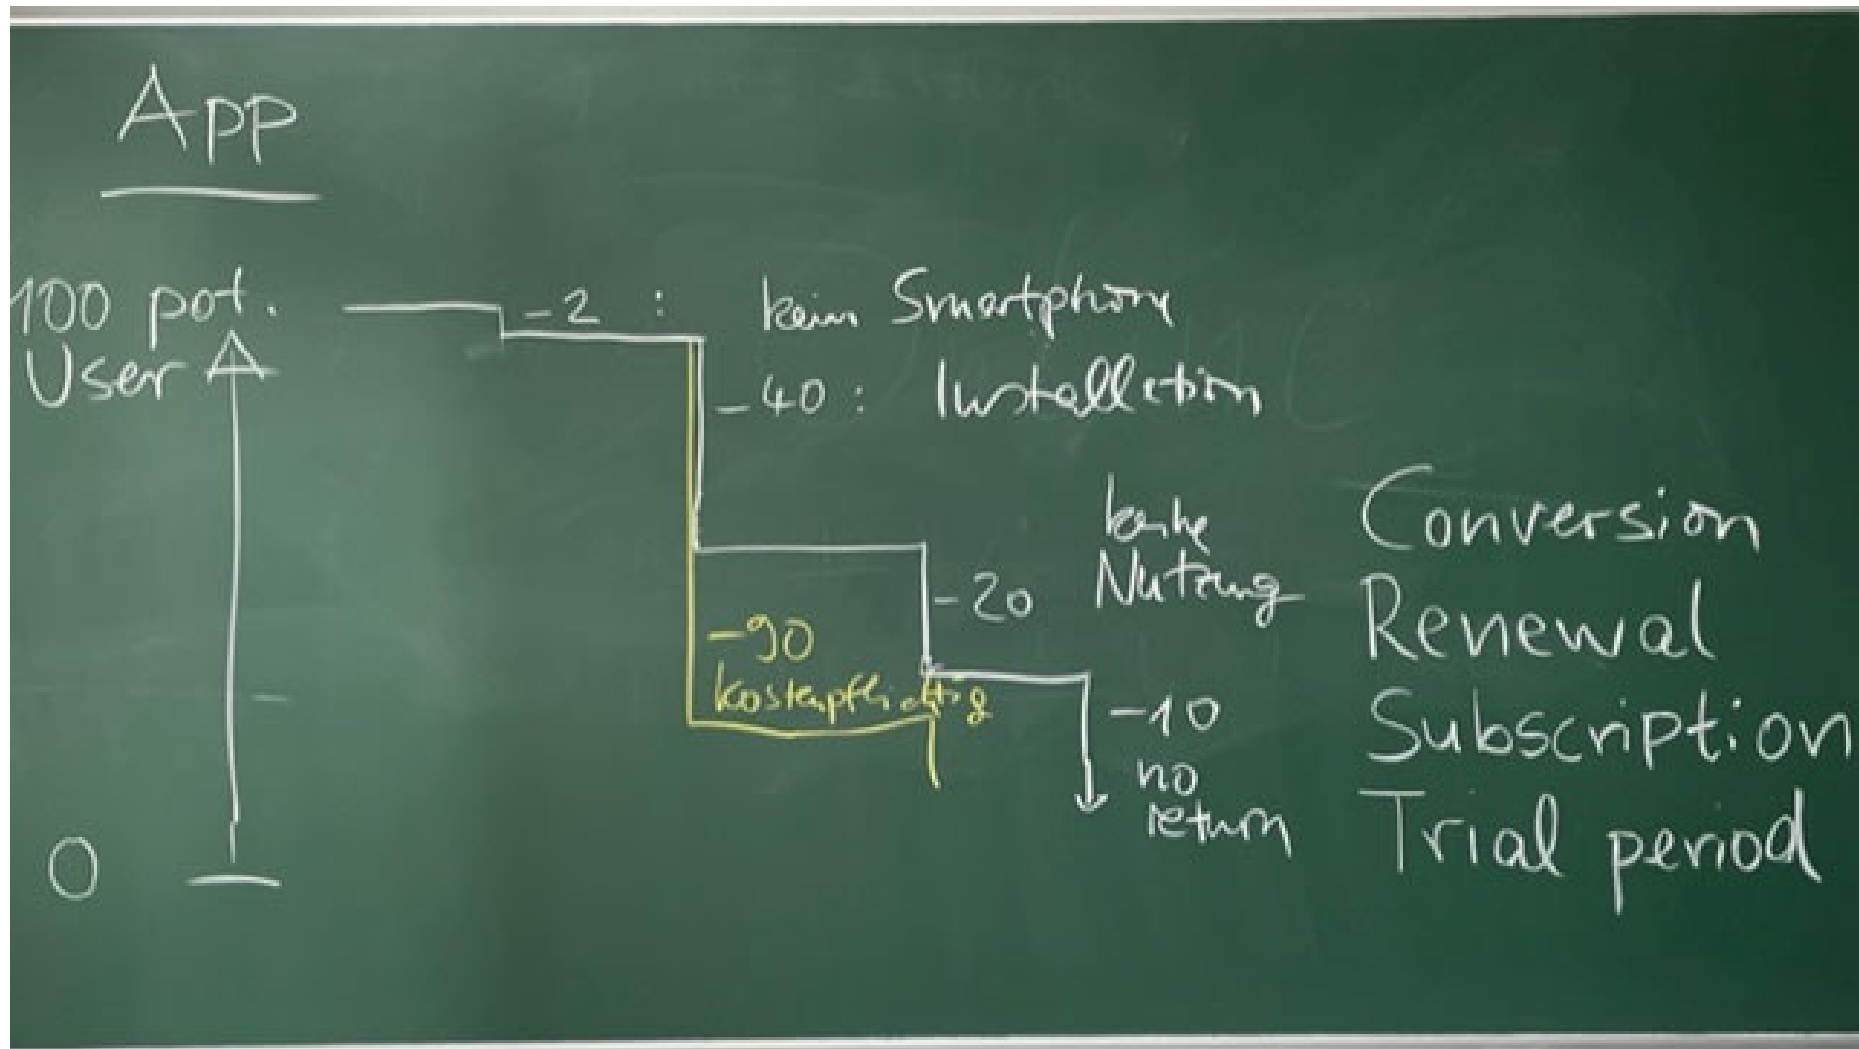 App
100 pot.
User
-2 : kein Smartphone
-40 : Installation
keine
Nutzung
-20
-90
kostenpflichtig
-10
no
return
0
Conversion
Renewal
Subscription
Trial period